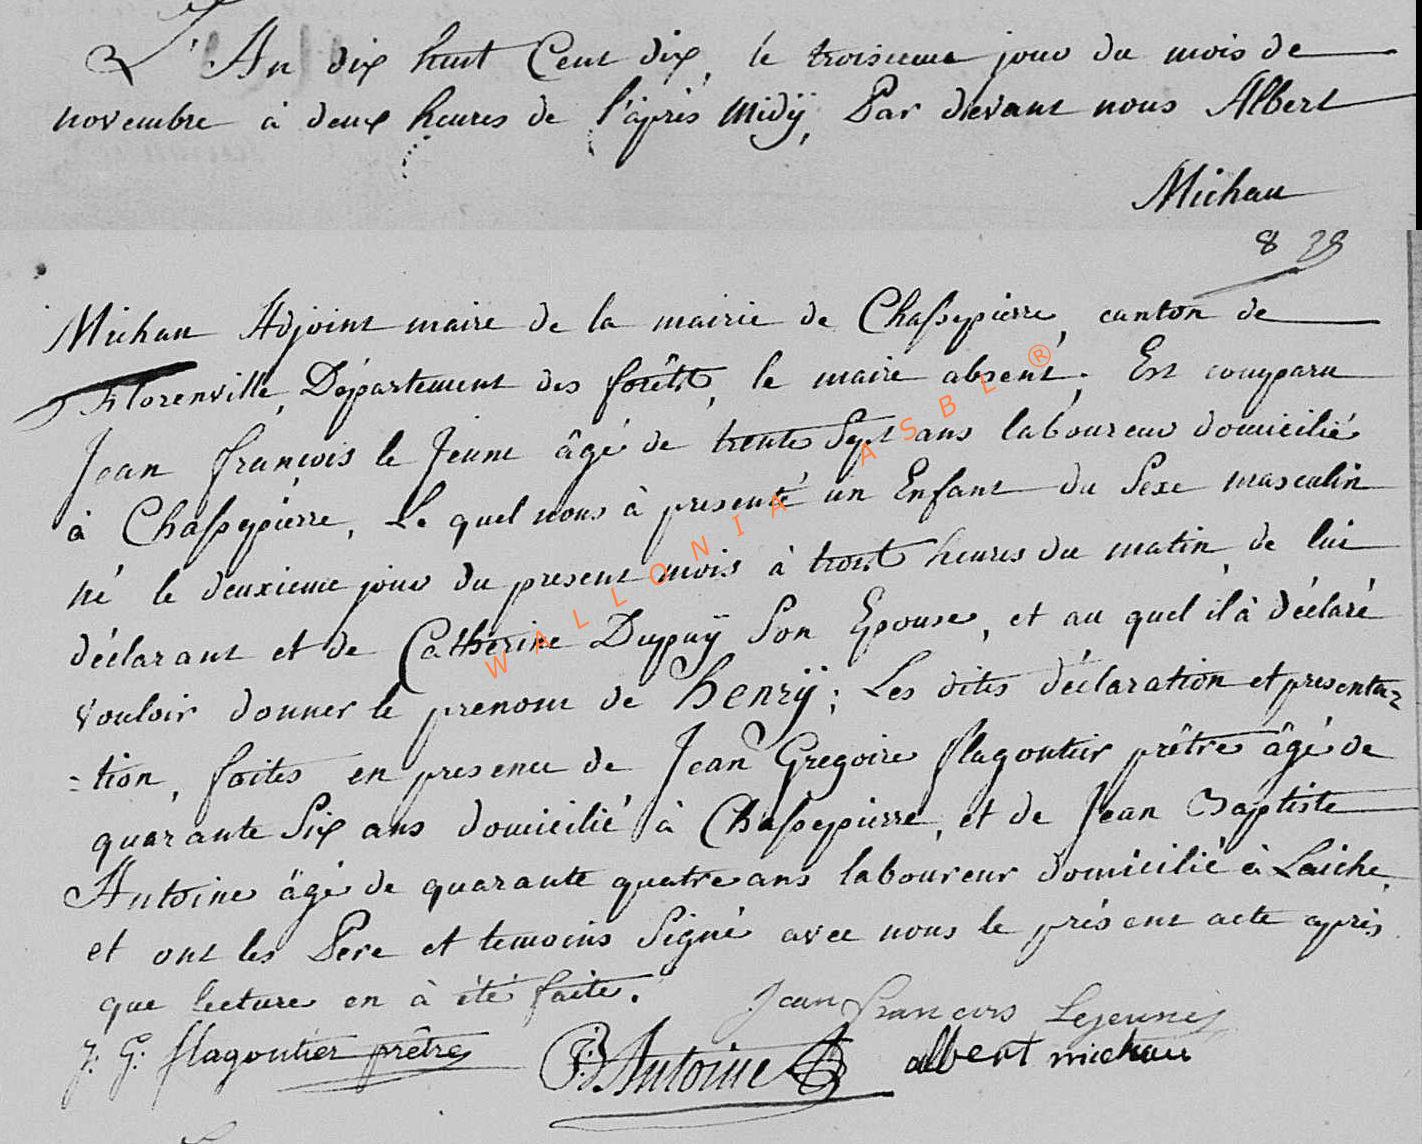 L'An dix huit Cent dix, le troisieme jour du mois de
novembre à deux heures de l'après Midÿ, Par devant nous Albert
Michau
8 28
Michau Adjoint maire de la mairie de Chassepierre, canton de
Florenville, Département des forêts, le maire absent; Est comparu
Jean françois le Jeune âgé de trente Sept ans laboureur domicilié
à Chassepierre, Le quel nous à presenté un Enfant du Sexe masculin
né le deuxieme jour du present mois à trois heures du matin, de lui
déclarant et de Catherine Dupuÿ Son Epouse, et au quel il à déclaré
vouloir donner le prenom de henrÿ; Les dites déclaration et presenta-
=tion, faites en presence de Jean Gregoire flagontier prêtre âgé de
quarante Six ans domicilié à Chassepierre, et de Jean Baptiste
Antoine âgé de quarante quatre ans laboureur domicilié à Laiche,
et ont les Pere et temoins Signé avec nous le présent acte après
que lecture en à été faite.
Jean francois Lejeune
J: G: flagontier prêtre
JB Antoine
albert michau
WALLONIA ASBL ®